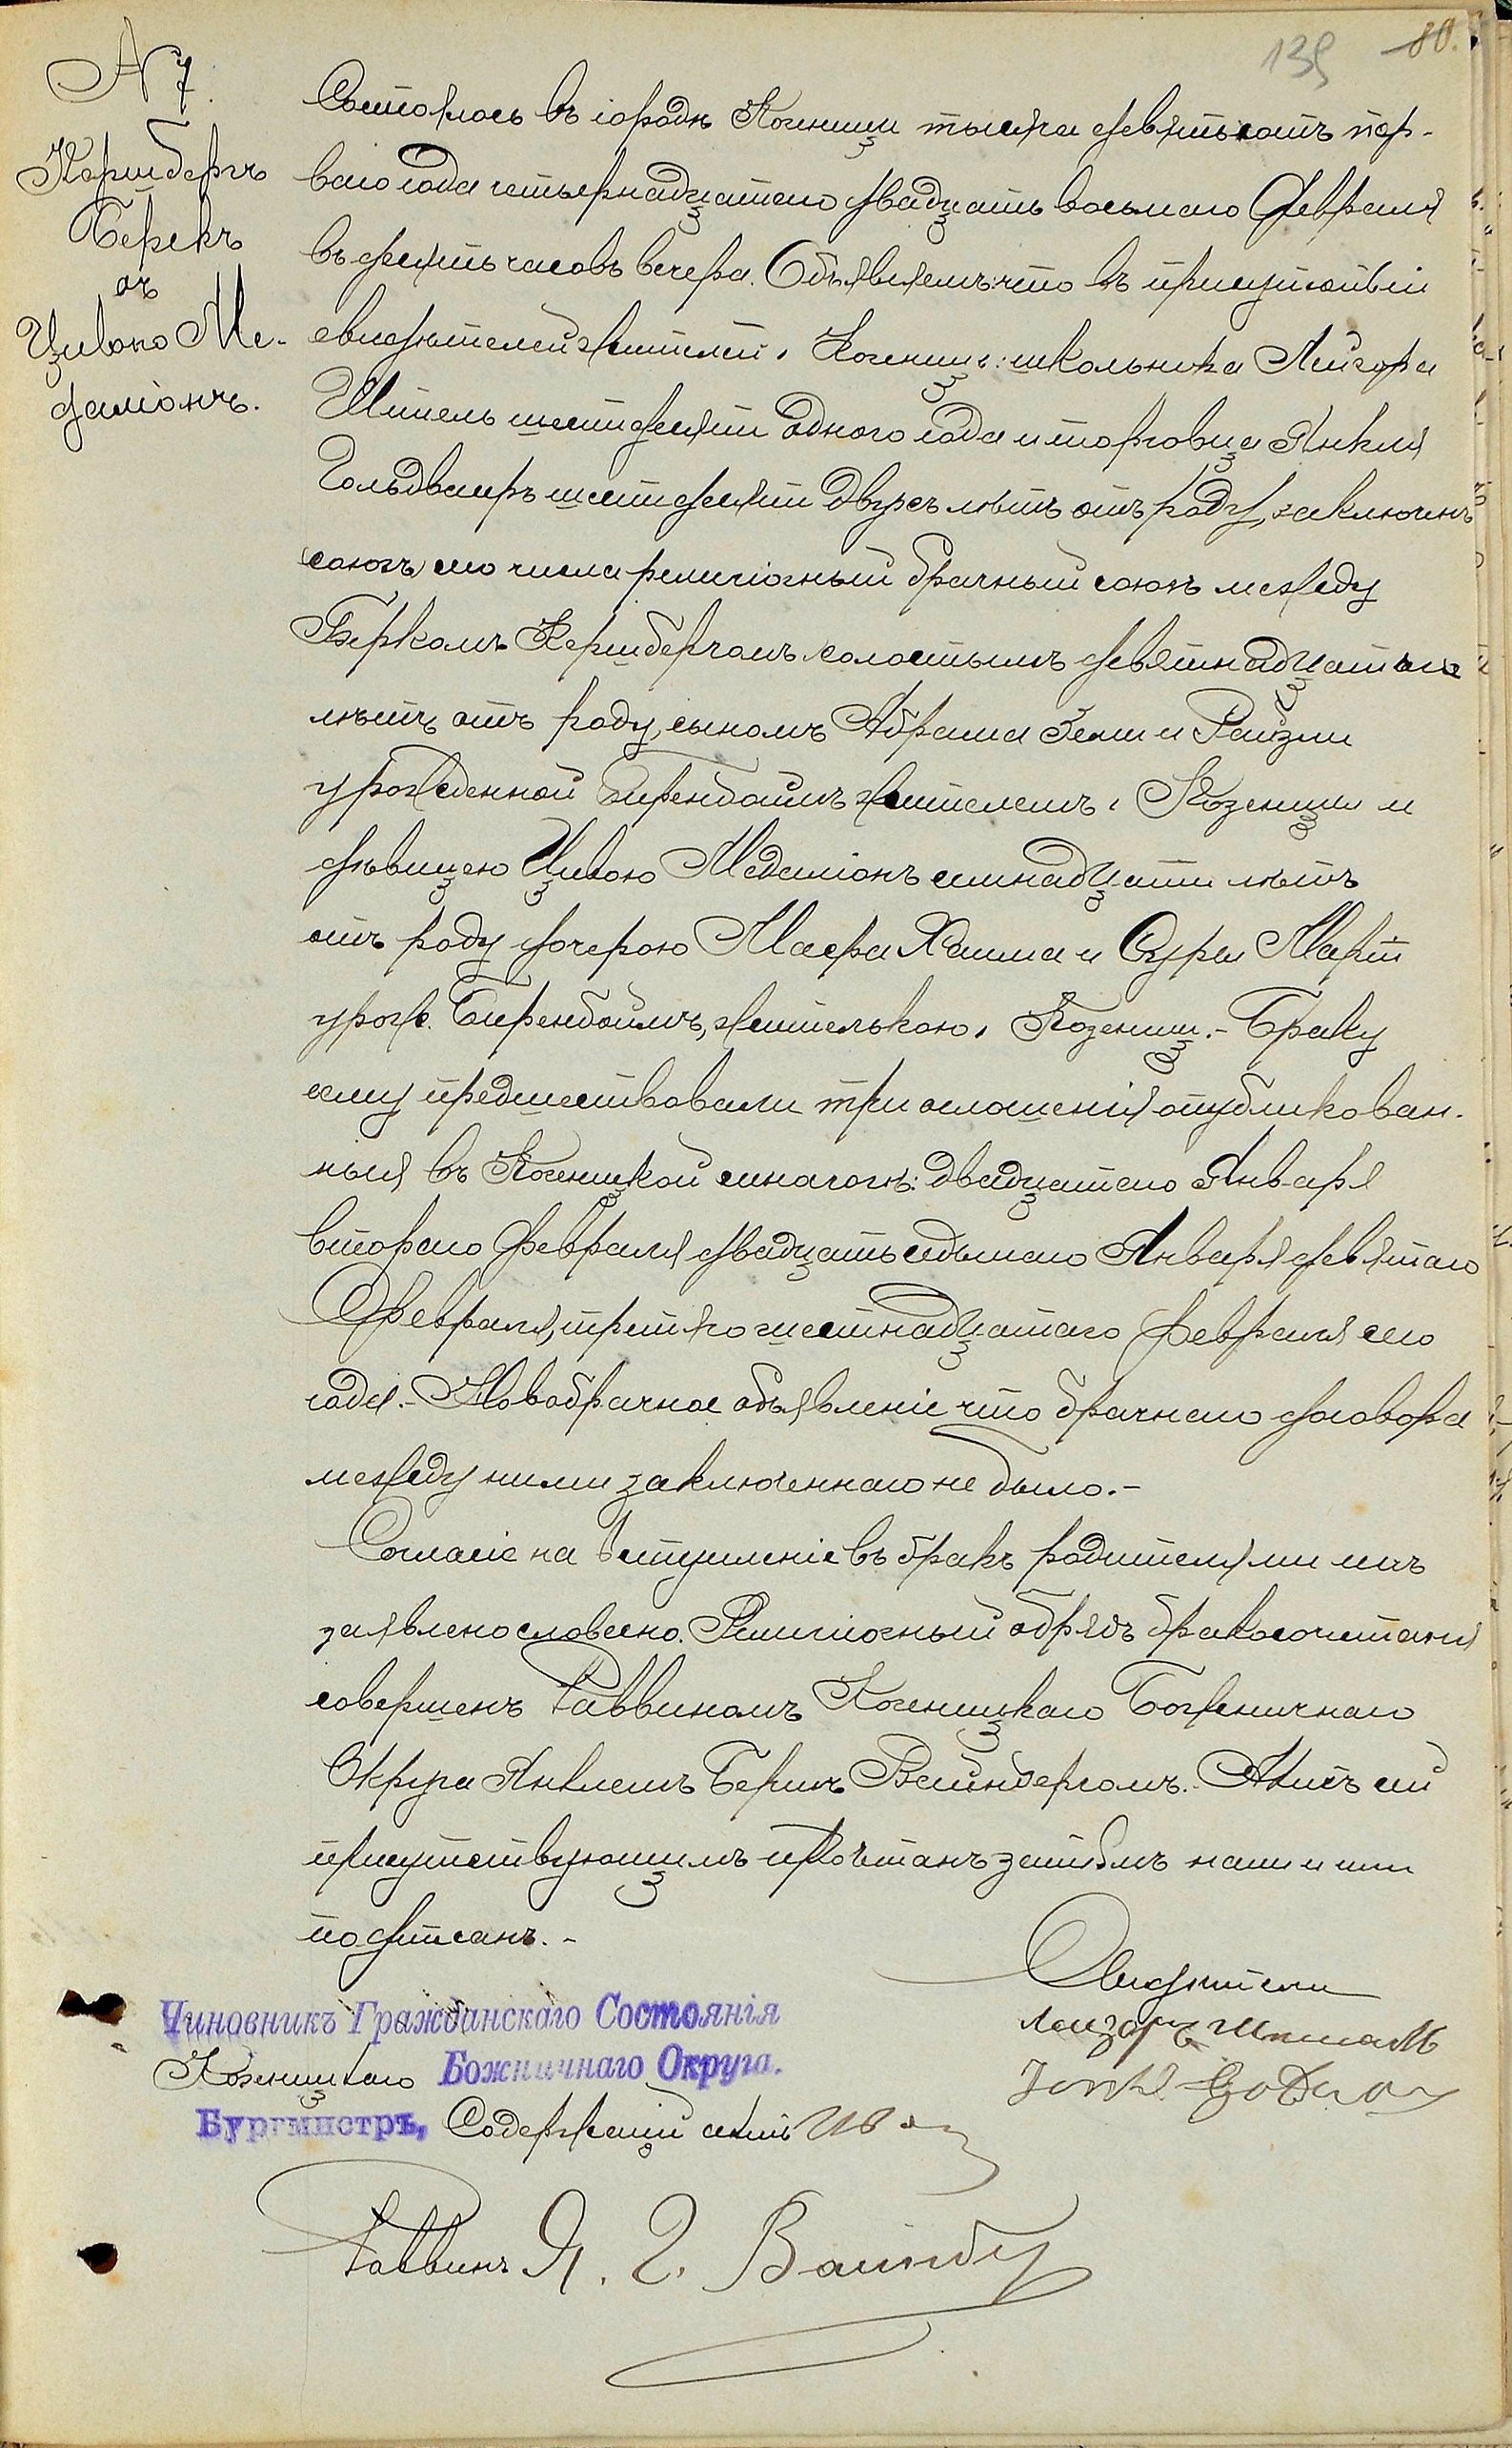 135 80.
№ 7.
Кершбергъ
Берекъ
съ
Цивою Ме-
даліонъ.
Состоялось въ городѣ Козеницы тысяча девятьсотъ пер-
ваго года четырнадцатаго двадцать восьмаго Февраля
въ десять часовъ вечера. Объявляемъ: что въ присутствіи
свидѣтелей жителей г. Козеницъ: школьника Лейзора
Шпигель шестидесяти одного года и торговца Янкля
Гольдваръ шестидесяти двухъ лѣтъ отъ роду, заключенъ
союзъ сего числа религіозный брачный союзъ между
Беркомъ Кершбергомъ холостымъ девятнадцати
лѣтъ отъ роду, сыномъ Абрама Зели и Райзли
урожденной Биренбаумъ жителемъ г. Козеницы и
дѣвицею Цивою Медаліонъ семнадцати лѣтъ
отъ роду дочерью Маера Хаима и Суры Марьи
урож. Биренбаумъ, жительскою г. Козеницъ. - Браку
сему предшествовали три оглашенія опубликован-
ныя въ Козеницкой синагогѣ: двадцатаго Января
втораго Февраля, двадцать седьмаго Января девятаго
Февраля, третьяго шестнадцатаго Февраля сего
года. - Новобрачное объявленіе что брачнаго договора
между ними заключеннаго не было. -
Согласіе на вступленіе въ бракъ родителями ихъ
заявлено словесно. Религіозный обрядъ бракосочетанія
совершенъ Раввиномъ Козеницкаго Божничнаго
Округа Янклемъ Беркъ Вайнбергомъ. Актъ сей
присутствующимъ прочитанъ затѣмъ нами и ими
подписанъ. -
Свидѣтели
Лейзоръ
Чиновникъ Гражданскаго Состоянія
Козеницкаго Божничнаго Округа.
Бургмистръ, Содержащій акты
Раввинъ Я. Вайнбергъ